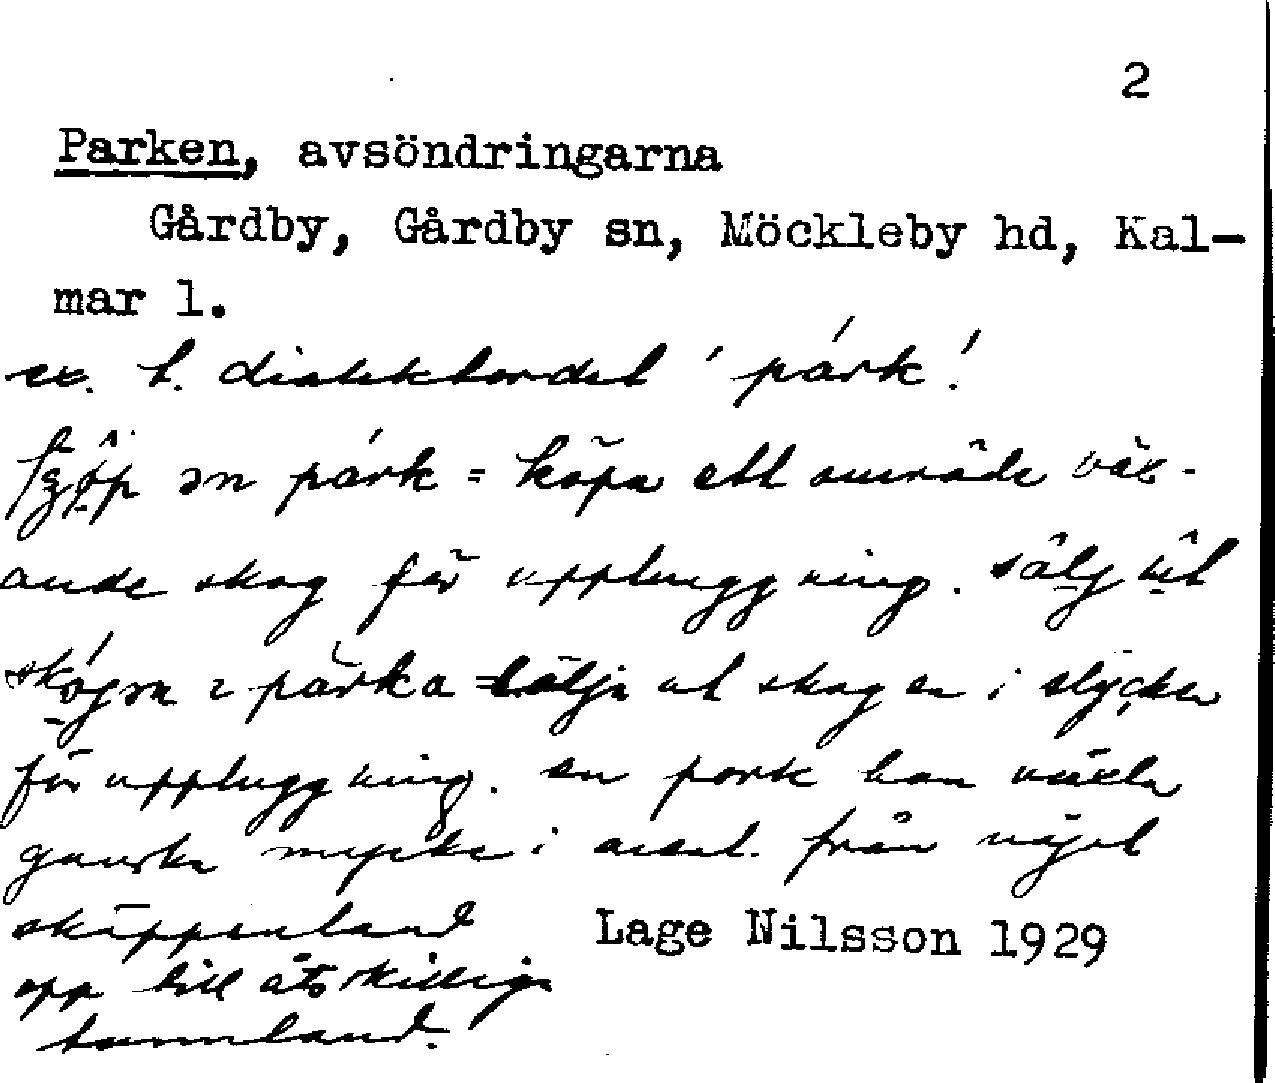 2
Parken, avsöndringarna
Gårdby, Gårdby sn, Möckleby hd, Kal-
mar l.
t. dialektordet 'park'.
ən park = köpa ett område väx-
ande skog för upphuggning. sälj
skogən i parka = sälja ut skogen i stycken
för upphuggning. en park kan växla
ganska mycke i areal. från något
skäppenland
upp till åtskilliga
tunnland.
Lage Nilsson 1929